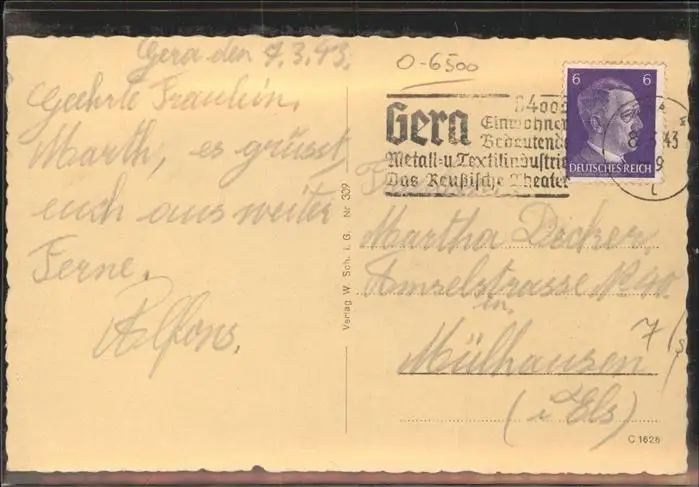 Gera den 7.3.43.
Geehrte Fraulein,
Marth, es grüsst
euch aus weiter
Ferne.
Alfons.
Verlag W. Sch. i. G. Nr 309
0-6500
Gera
84000
Einwohner
Bedeutende
Metall-u.Textilindustrie
Das Reußische Theater
6 6
DEUTSCHES REICH
8. 43
9
Martha Decker,
Amselstrasse No 40.
in
Mülhausen
(i Els)
7/s
C 1626